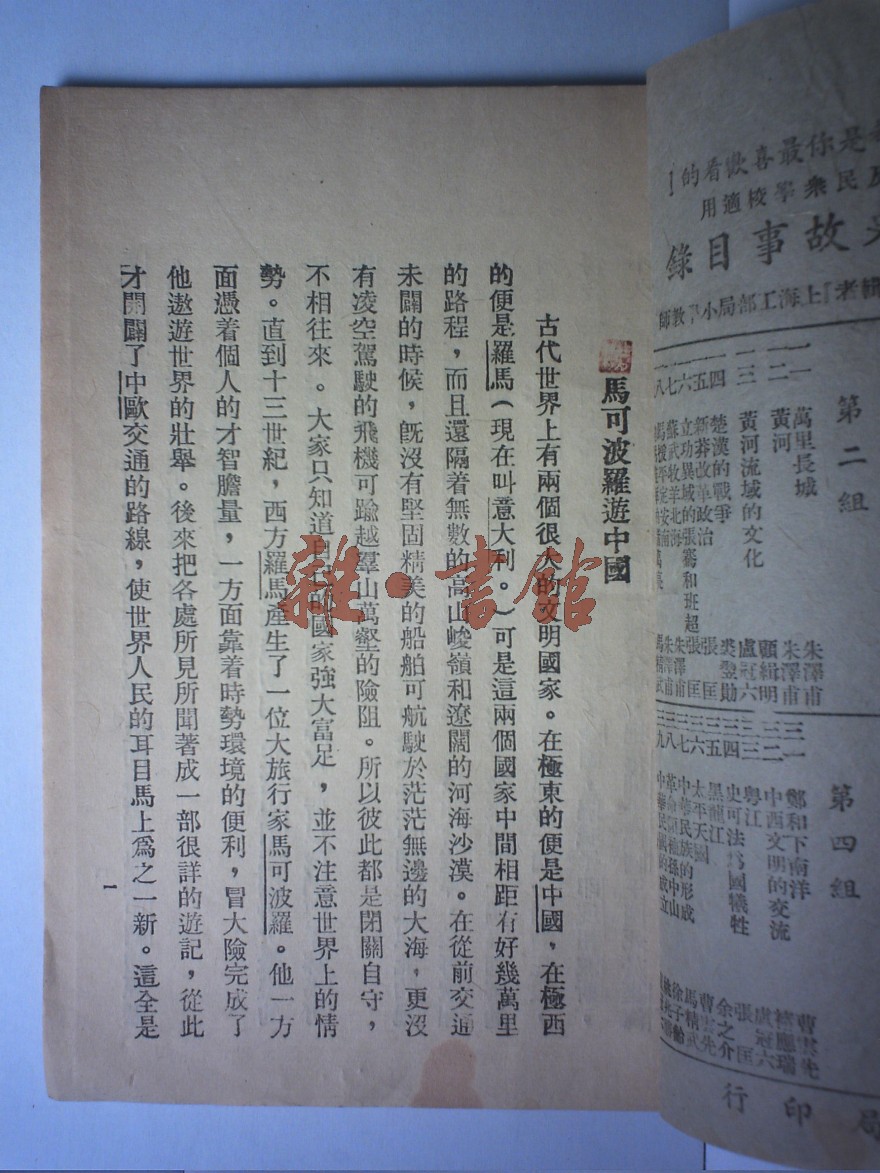 馬可波羅遊中國
古代世界上有兩個很大的文明國家。在極東的便是中國，在極西
的便是羅馬（現在叫意大利。）可是這兩個國家中間相距有好幾萬里
的路程，而且還隔着無數的高山峻嶺和遼闊的河海沙漠。在從前交通
未闢的時候，旣沒有堅固精美的船舶可航駛於茫茫無邊的大海，更沒
有凌空駕駛的飛機可踰越羣山萬壑的險阻。所以彼此都是閉關自守，
不相往來。大家只知道自己的國家強大富足，並不注意世界上的情
勢。直到十三世紀，西方羅馬產生了一位大旅行家馬可波羅。他一方
面憑着個人的才智膽量，一方面靠着時勢環境的便利，冒大險完成了
他遨遊世界的壯舉。後來把各處所見所聞著成一部很詳的遊記，從此
才開闢了中歐交通的路線，使世界人民的耳目馬上爲之一新。這全是
一
雜·書館
是你最喜歡看的
民衆學校適用
故事目錄
上海工部局小學教師
第二組
一一 萬里長城 朱澤甫
一二 黃河 朱澤甫
顧緝明
一三 黃河流域的文化 盧冠六
一四 楚漢的戰爭 裘翌勛
一五 新莽改革政治 張匡
一六 立功異域的張騫和班超 張匡
一七 蘇武牧羊北海 朱澤甫
一八
第四組
三一 鄭和下南洋 曹雲先
三二 中西文明的交流
三三 粵江 盧冠六
三四 史可法爲國犧牲 張匡
三五 黑龍江 余之介
三六 太平天國 曹雲先
三七 中華民族的形成 馬精武
三八
三九
局印行